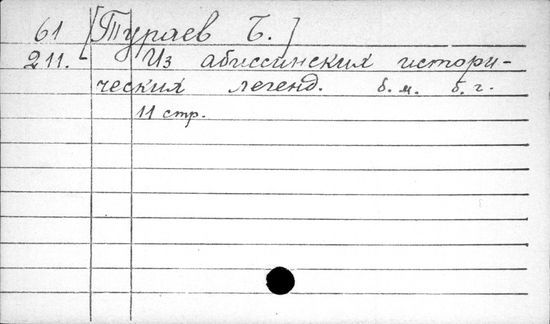 61 [Тураев Б.]
211. Из абиссинских истори-
ческих легенд. б. м. б. г.
11 стр.